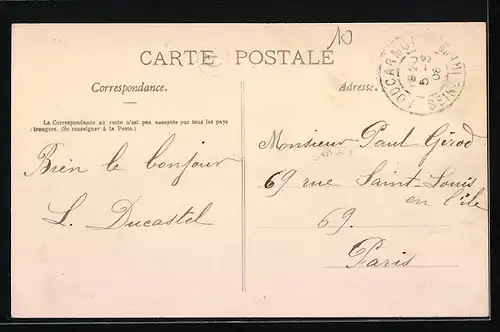 10
CARTE POSTALE
Correspondance.
Adresse.
La Correspondance au recto n'est pas acceptée par tous les pays
étrangers. (Se renseigner à la Poste.)
Bien le bonjour
L. Ducastel
Monsieur Paul Girod
69 rue Saint-Louis
en l'ile
69.
Paris